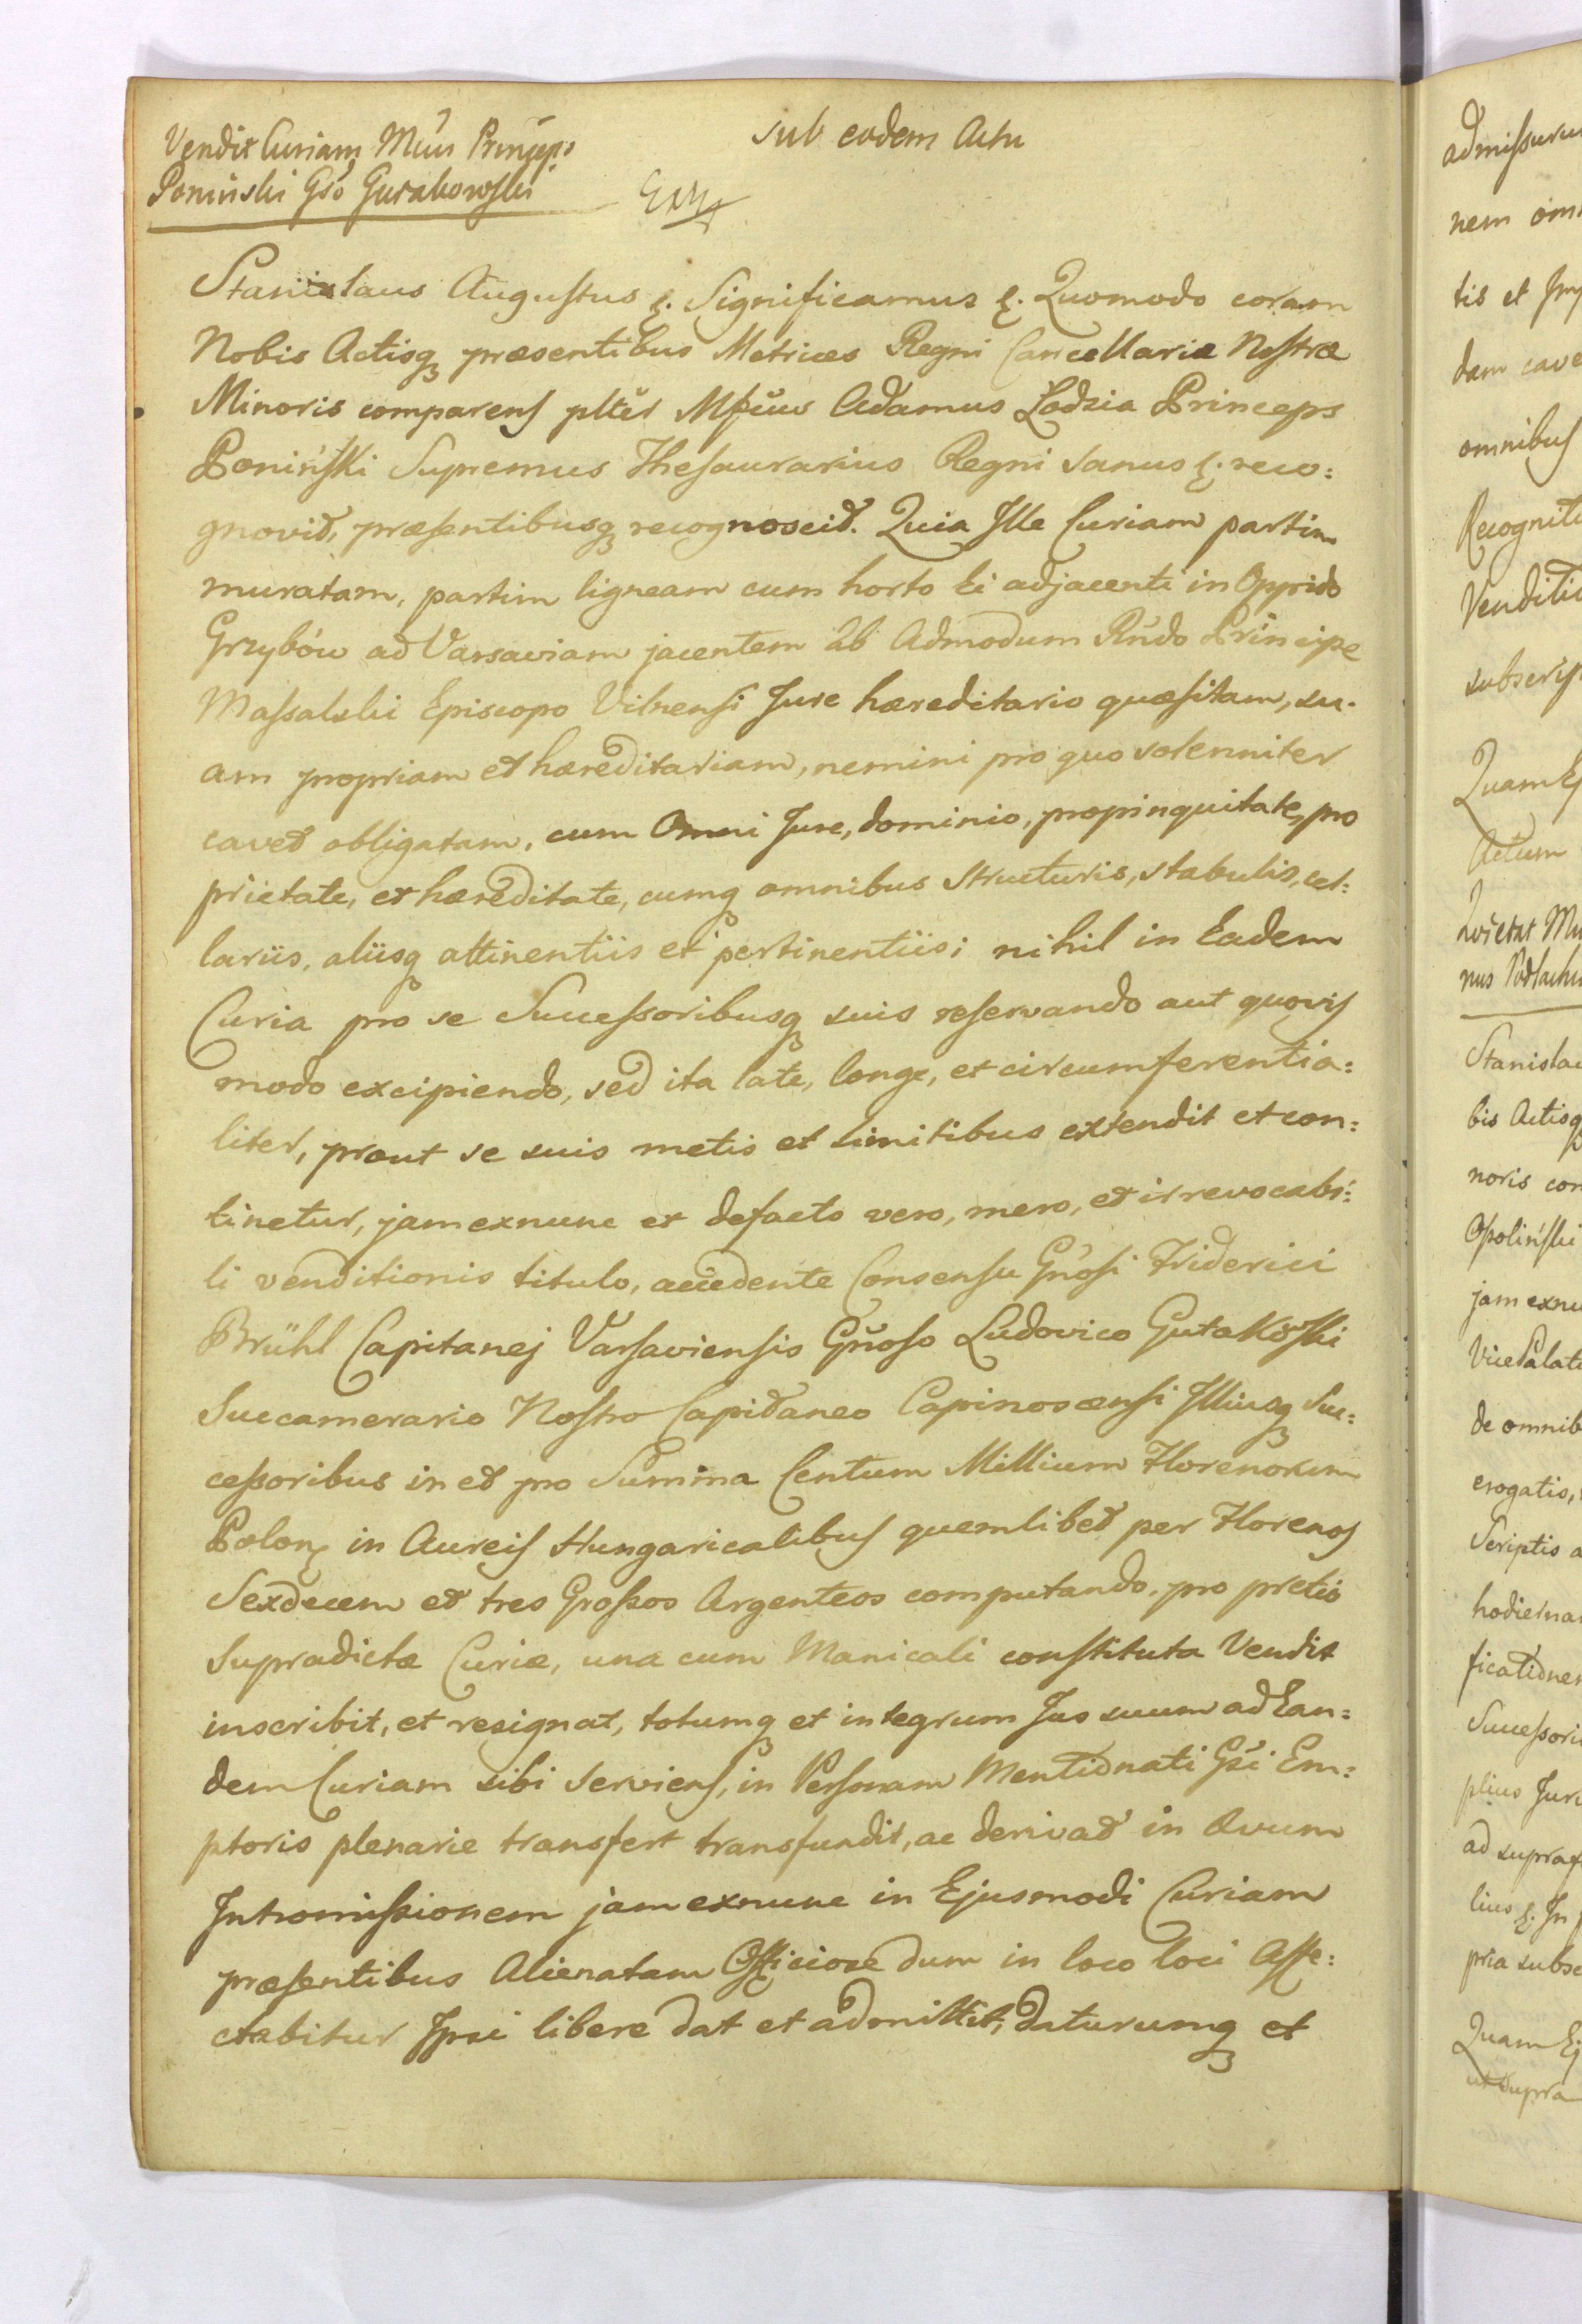 Vendit Curiam Mcus Princeps
Poninski Gso Gutakowski
Sub eodem Actu
Stanislaus Augustus &. Significamus &. Quomodo coram
Nobis Actisq præsentibus Metrices Regni Cancellariæ Nostræ
Minoris comparens plter Mfcus Adamus Lodzia Princeps
Poniński Supremus Thesaurarius Regni sanus &. reco:
gnovit, præsentibusq recognoscit. Quia Ille Curiam partim
muratam, partim ligneam cum horto Ei adjacenti in Oppido
Grzybów ad Varsaviam jacentem ab Admodum Rndo Principe
Massalski Episcopo Vilnensi Jure hæreditario quæsitam, su:
am propriam et hæreditariam, nemini pro quo solenniter
cavet obligatam, cum Omni Jure, dominio, propinquitate, pro
prietate, et hæreditate, cumq omnibus structuris, stabulis, cel:
lariis, aliisq attinentiis et pertinentiis; nihil in Eadem
Curia pro se Successoribusq suis reservando aut quovis
modo excipiendo, sed ita late, longe, et circumferentia:
liter, prout se suis metis et limitibus extendit et con:
tinetur, jam exnunc et defacto vero, mero, et irrevocabi:
li venditionis titulo, accedente Consensu Gnosi Friderici
Brühl Capitanej Varsaviensis Gnoso Ludovico Gutakoski
Succamerario Nostro Capitaneo Capinoscensi Illiusq Suc:
cessoribus in et pro Summa Centum Millium Florenorum
Polon in Aureis Hungaricalibus quemlibet per Florenos
Sexdecem et tres Grossos Argenteos computando, pro pretio
supradictæ Curiæ, una cum Manicali constituta Vendit
inscribit, et resignat, totumq et integrum Jus suum ad Ean:
dem Curiam sibi serviens, in Personam Mentionati Gsi Em:
ptoris plenarie transfert transfundit, ac derivat in Avum
Intromissionem jam exnunc in Ejusmodi Curiam
præsentibus Alienatam Officiose dum in loco loci Affe:
ctabitur Ipsi libere dat et admittit, daturumq et
admissurum
nem omn
tis et Imp
dam cave
omnibus
Recogniti
Venditi
subscrip
Quam Ej
Actum
Quietat Mu
nus Podlachi
Stanislau
bis Actisq
noris com
Opoliński
jam exnu
Vice Palati
de omnib
erogatis,
Scriptis a
hodierna
ficationem
Successori
plius Juri
ad supraf
lius &. In
pria subsc
Quam Ej
ut supra